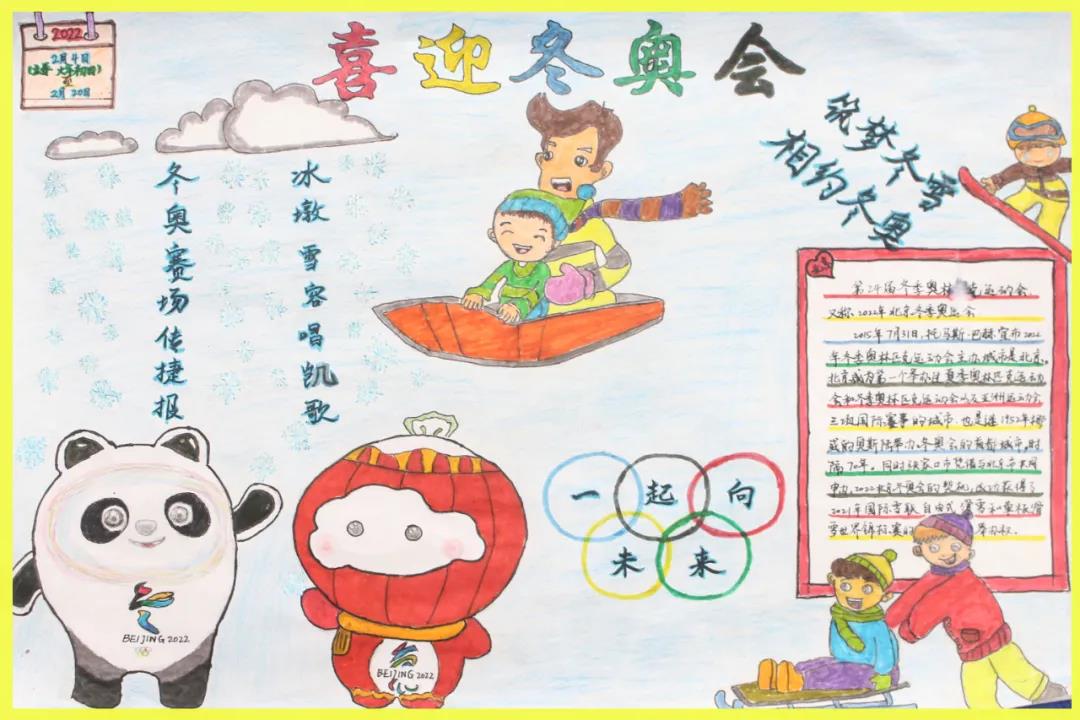 2022
2月4日
至
2月20日
喜迎冬奥会
筑梦冬雪
相约冬奥
冰墩雪容唱凯歌
冬奥赛场传捷报
第24届冬季奥林 克运动会,
又称:2022年北京冬季奥运会
2015年7月31日,托马斯·巴赫宣布2022
年冬季奥林匹克运动会主办城市是北京。
北京成为第一个举办过夏季奥林匹克运动
会和冬季奥林匹克运动会以及亚洲运动会
三项国际赛事的城市.也是继1952年挪
威的奥斯陆举办冬奥会的首都城市,时
隔70年。同时张家口市凭借与北京市共同
申办,2022北京冬奥会的契机,成功获得了
2021年国际雪联自由式滑雪和单板滑
雪世界锦标赛的 举办权.
一起向
未来
BEIJING 2022
BEIJING 2022